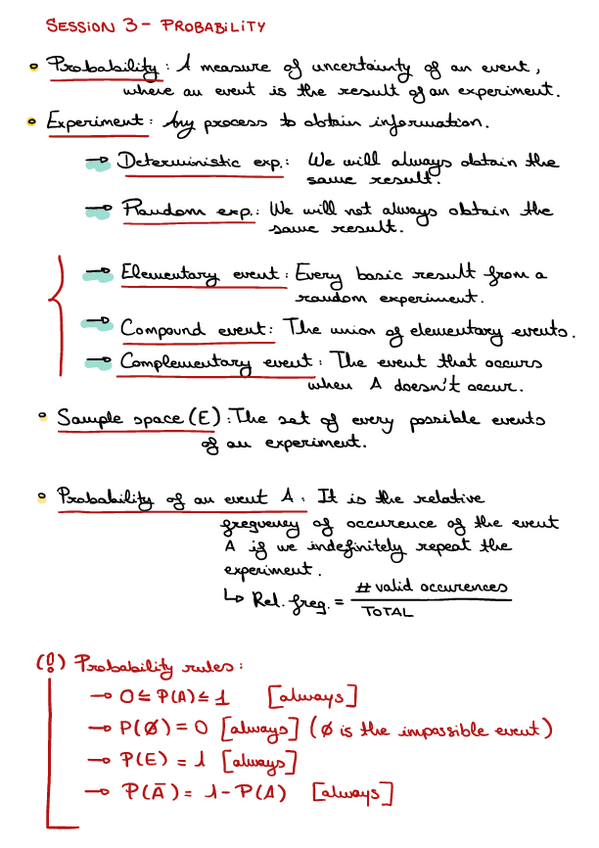 SESSION 3 - PROBABILITY
• Probability: A measure of uncertainty of an event,
where an event is the result of an experiment.
• Experiment: Any process to obtain information.
→ Deterministic exp.: We will always obtain the
same result.
→ Random exp.: We will not always obtain the
same result.
→ Elementary event: Every basic result from a
random experiment.
→ Compound event: The union of elementary events.
→ Complementary event: The event that occurs
when A doesn't occur.
• Sample space (E): The set of every possible events
of an experiment.
• Probability of an event A: It is the relative
frequency of occurence of the event
A if we indefinitely repeat the
experiment.
↳ Rel. freq. = # valid occurences
TOTAL
(!) Probability rules:
→ 0 ≤ P(A) ≤ 1 [always]
→ P(Ø) = 0 [always] (Ø is the impossible event)
→ P(E) = 1 [always]
→ P(Ā) = 1 - P(A) [always]